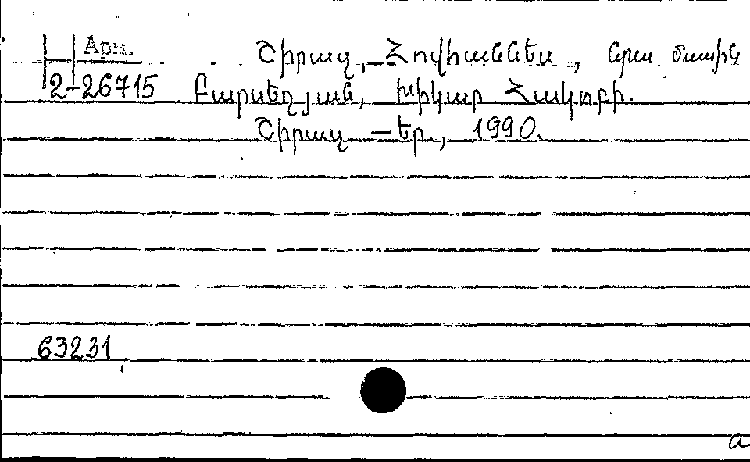 Арм. Շիրազ, Հովհաննես, նրա մասին
2-26715 Բարսեղյան, Խիկար Հակոբի.
Շիրազ — Եր., 1990.
63231
a